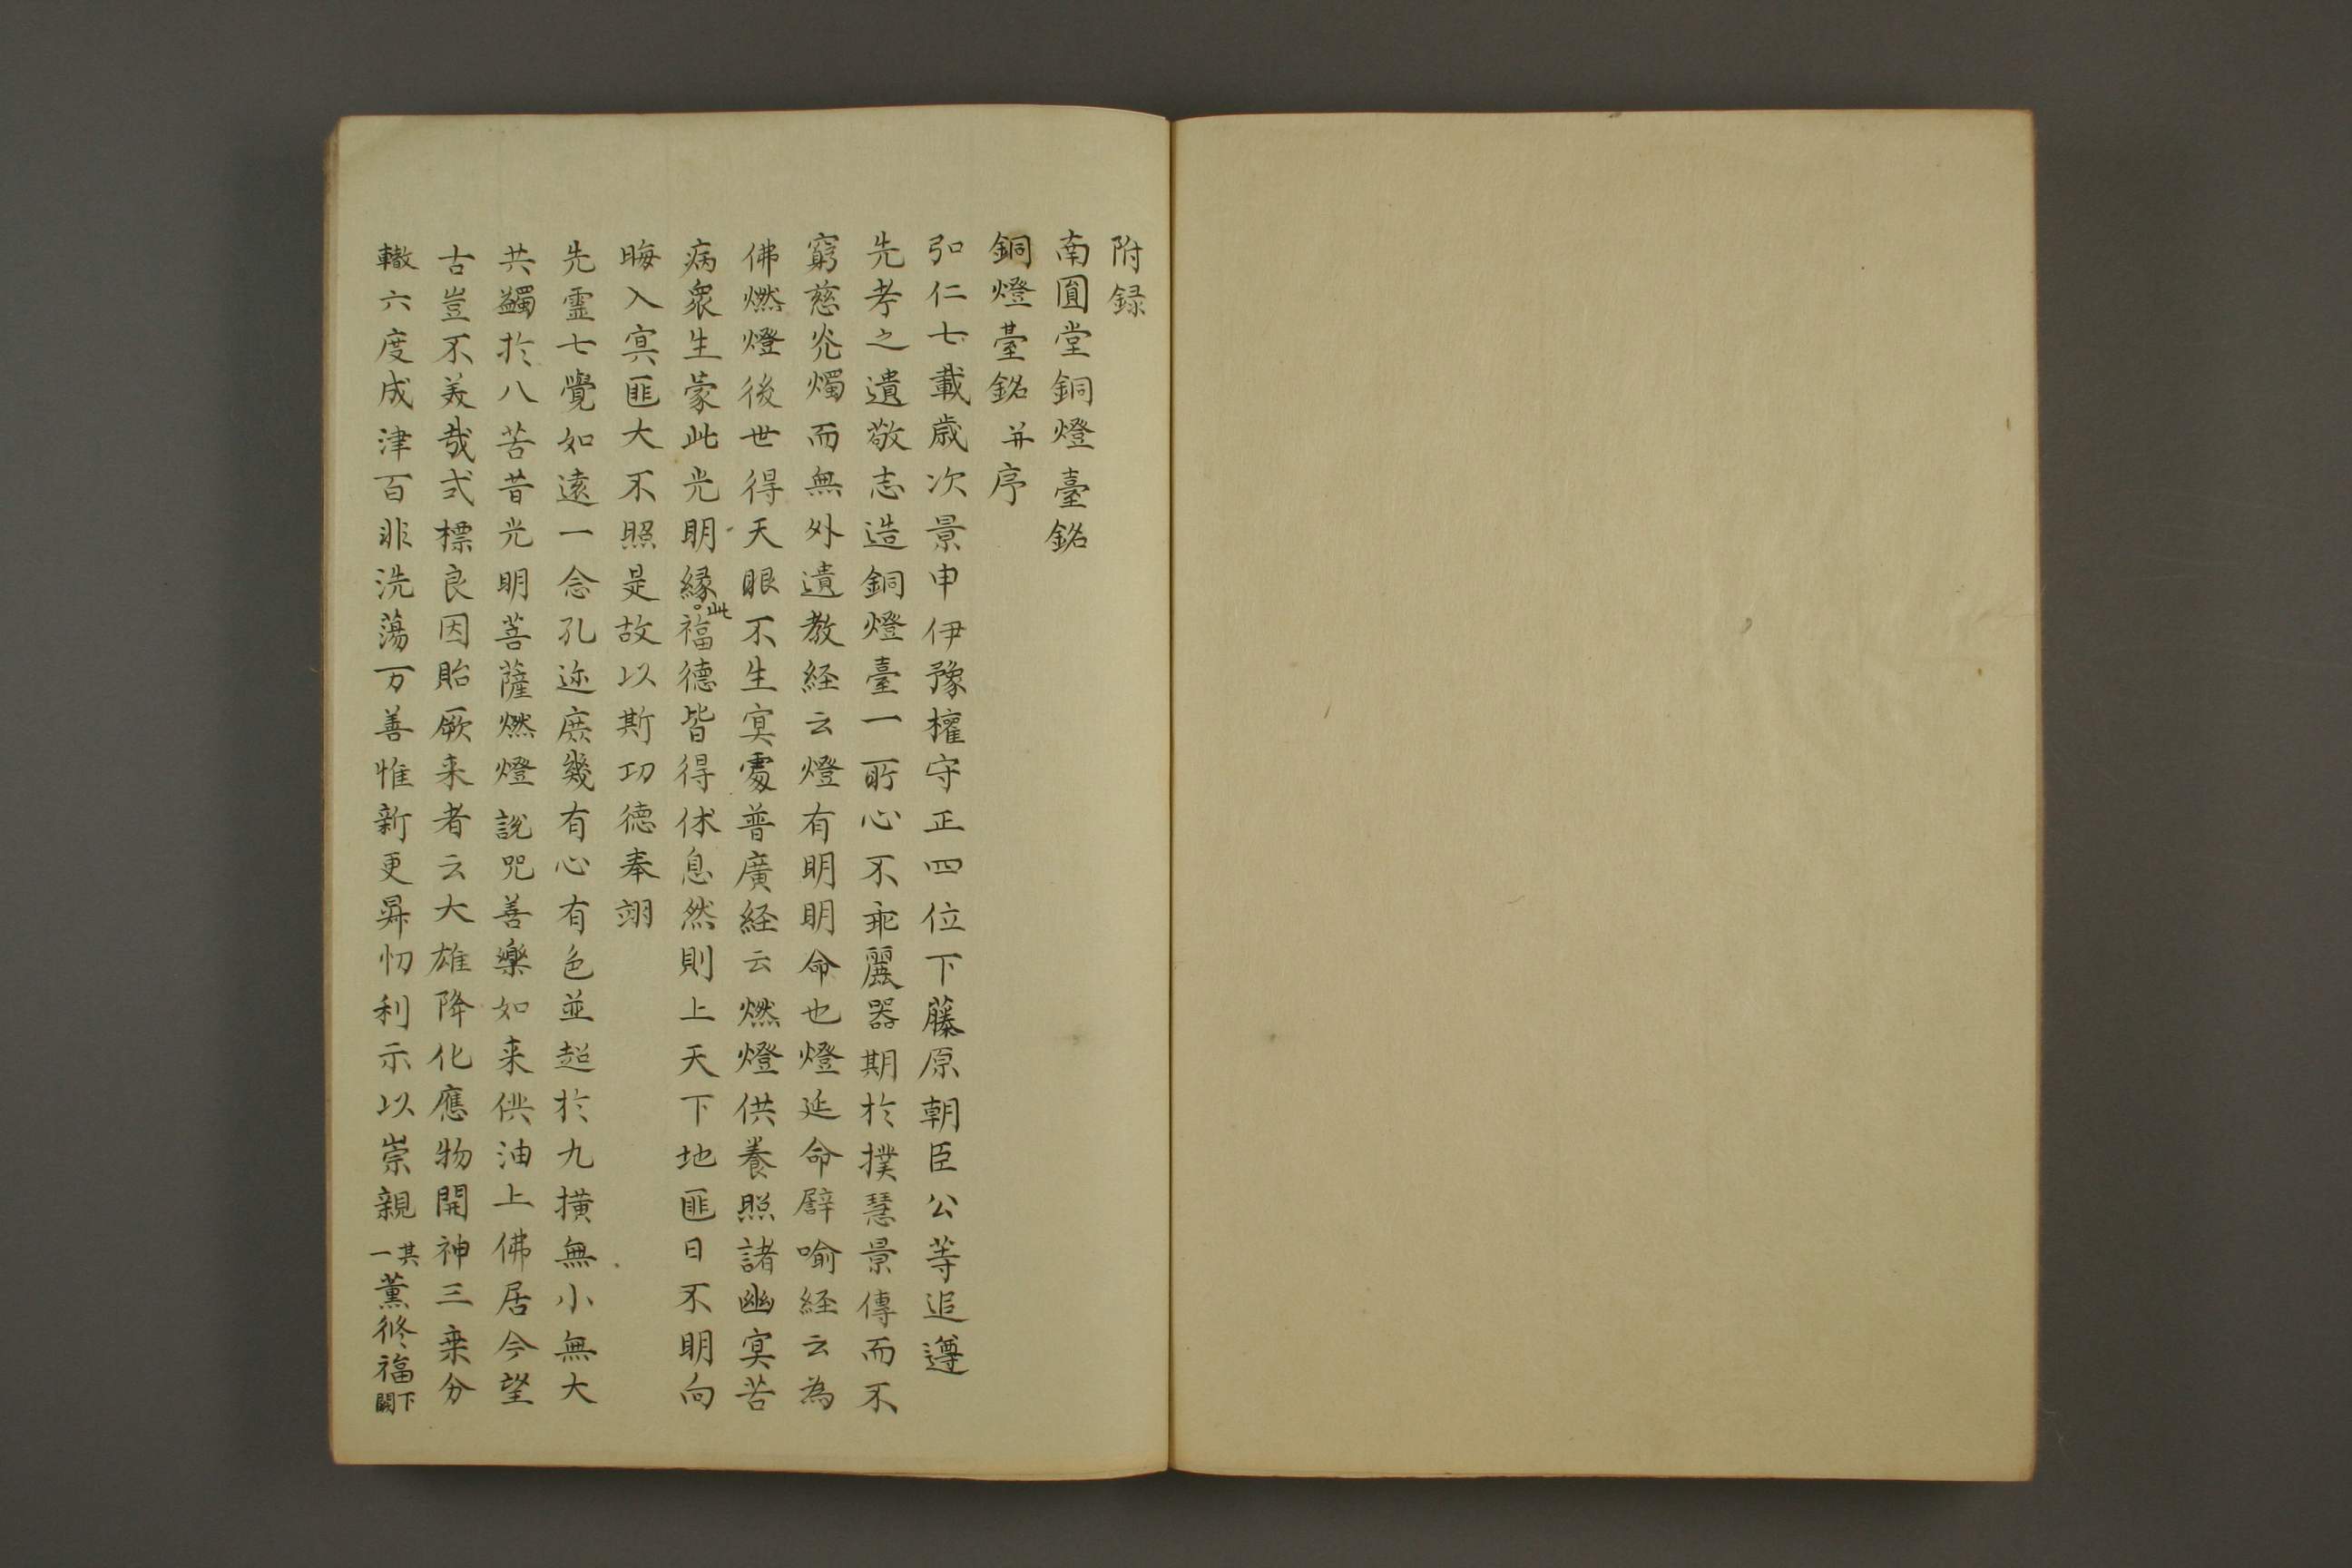 附録
南圓堂銅燈臺銘
銅燈臺銘并序
弘仁七載歲次景申伊豫權守正四位下藤原朝臣公等追遵
先考之遺敬志造銅燈臺一所心不乖麗器期於撲慧景傳而不
窮慈光燭而無外遺教経云燈有明明命也燈延命譬喻経云為
佛燃燈後世得天眼不生冥處普廣経云燃燈供養照諸幽冥苦
病衆生蒙此光明緣此福德皆得休息然則上天下地匪日不明向
晦入冥匪大不照是故以斯功德奉翊
先霊七覺如遠一念孔迩庶幾有心有色並超於九横無小無大
共蠲於八苦昔光明菩薩燃燈說咒善樂如来供油上佛居今望
古豈不美哉式標良因貽厥来者云大雄降化應物開神三乗分
轍六度成津百非洗蕩万善惟新更昇忉利示以崇親其一薫修福下闕